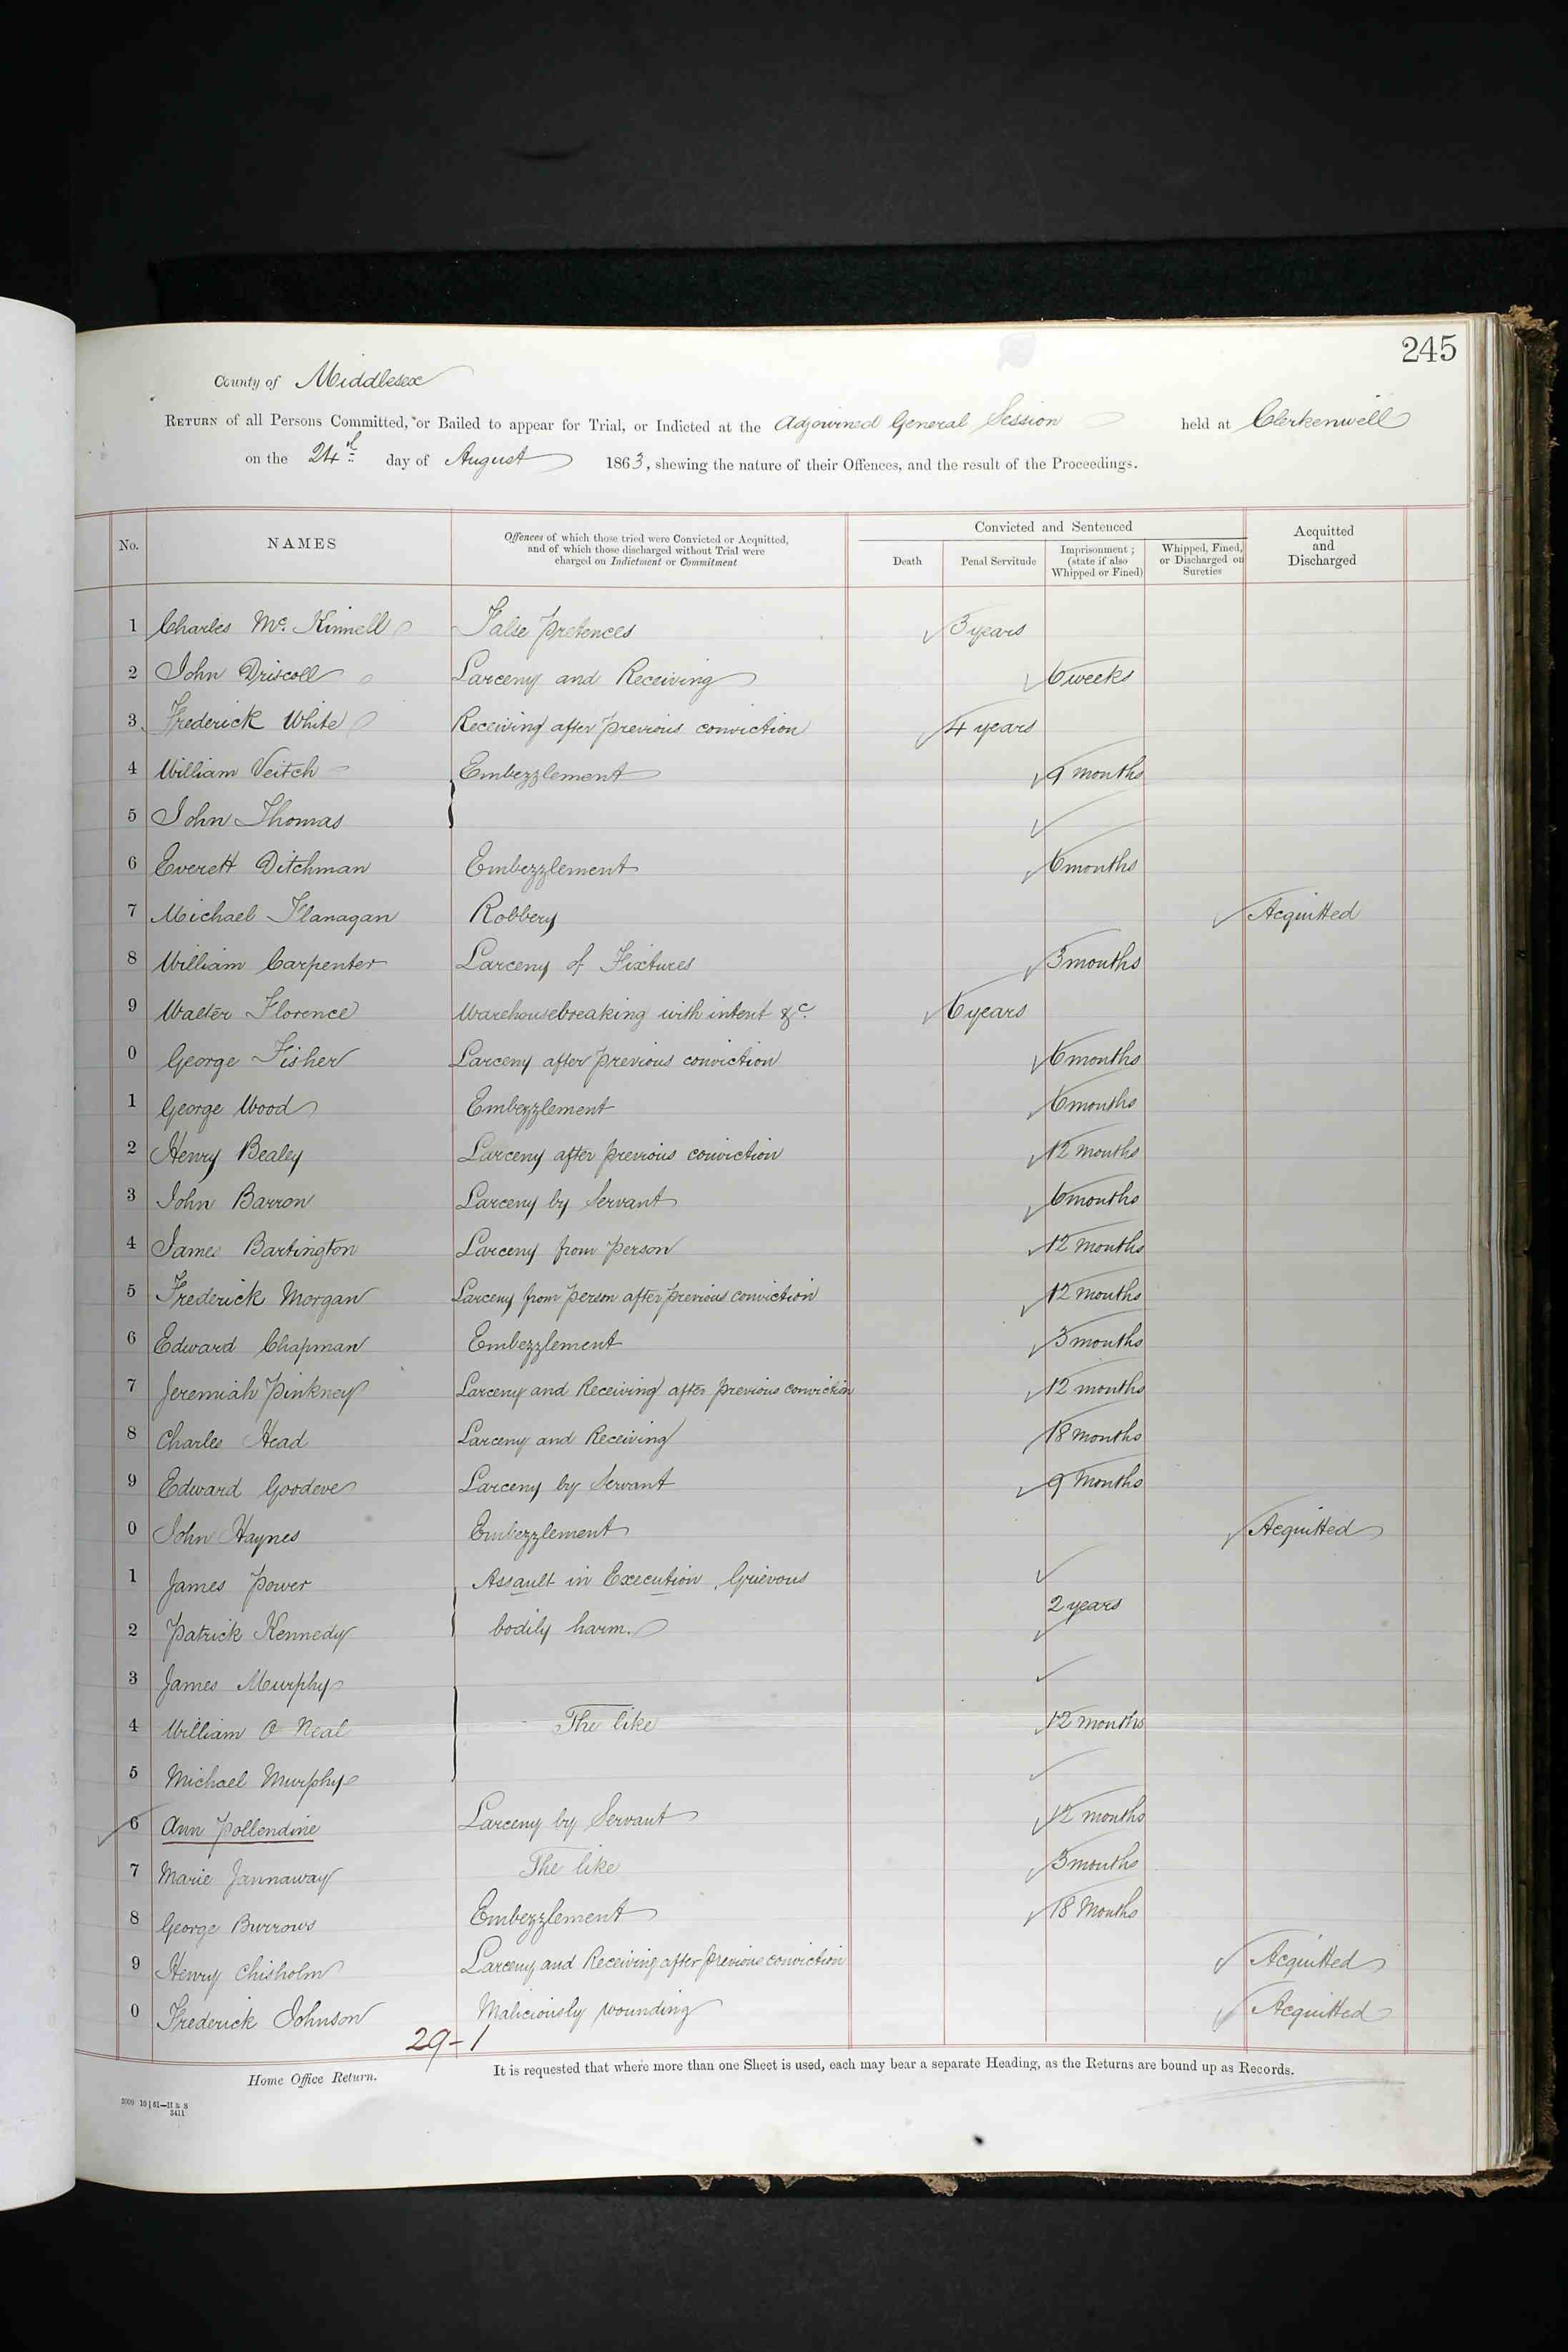 245
County of Middlesex
RETURN of all Persons Committed, or Bailed to appear for Trial, or Indicted at the Adjourned General Session held at Clerkenwell
on the 24th day of August 1863, shewing the nature of their Offences, and the result of the Proceedings.
No. NAMES Offences of which those tried were Convicted or Acquitted, and of which those discharged without Trial were charged on Indictment or Commitment Convicted and Sentenced Death Penal Servitude Imprisonment; (state if also Whipped or Fined) Whipped, Fined, or Discharged on Sureties Acquitted and Discharged
1 Charles Mc. Kinnell False pretences 3 years
2 John Driscoll Larceny and Receiving 6 weeks
3 Frederick White Receiving after previous conviction 4 years
4 William Veitch Embezzlement 9 months
5 John Thomas
6 Everett Ditchman Embezzlement 6 months
7 Michael Flanagan Robbery Acquitted
8 William Carpenter Larceny of Fixtures 3 months
9 Walter Florence Warehousebreaking with intent &c. 6 years
0 George Fisher Larceny after previous conviction 6 months
1 George Wood Embezzlement 6 months
2 Henry Bealey Larceny after previous conviction 12 months
3 John Barron Larceny by Servant 6 months
4 James Bartington Larceny from person 12 months
5 Frederick Morgan Larceny from person after previous conviction 12 months
6 Edward Chapman Embezzlement 3 months
7 Jeremiah Pinkney Larceny and Receiving after previous conviction 12 months
8 Charles Head Larceny and Receiving 18 months
9 Edward Goodeve Larceny by Servant 9 Months
0 John Haynes Embezzlement Acquitted
1 James Power Assault in Execution, Grievous
2 years
2 Patrick Kennedy bodily harm.
3 James Murphy
4 William O Neal The like 12 months
5 Michael Murphy
6 Ann Pollendine Larceny by Servant 12 months
7 Marie Jannaway The like 3 months
8 George Burrows Embezzlement 18 Months
9 Henry Chisholm Larceny and Receiving after previous conviction Acquitted
0 Frederick Johnson Maliciously wounding Acquitted
29-1
Home Office Return. It is requested that where more than one Sheet is used, each may bear a separate Heading, as the Returns are bound up as Records.
2000 10 | 61—H & S
3411